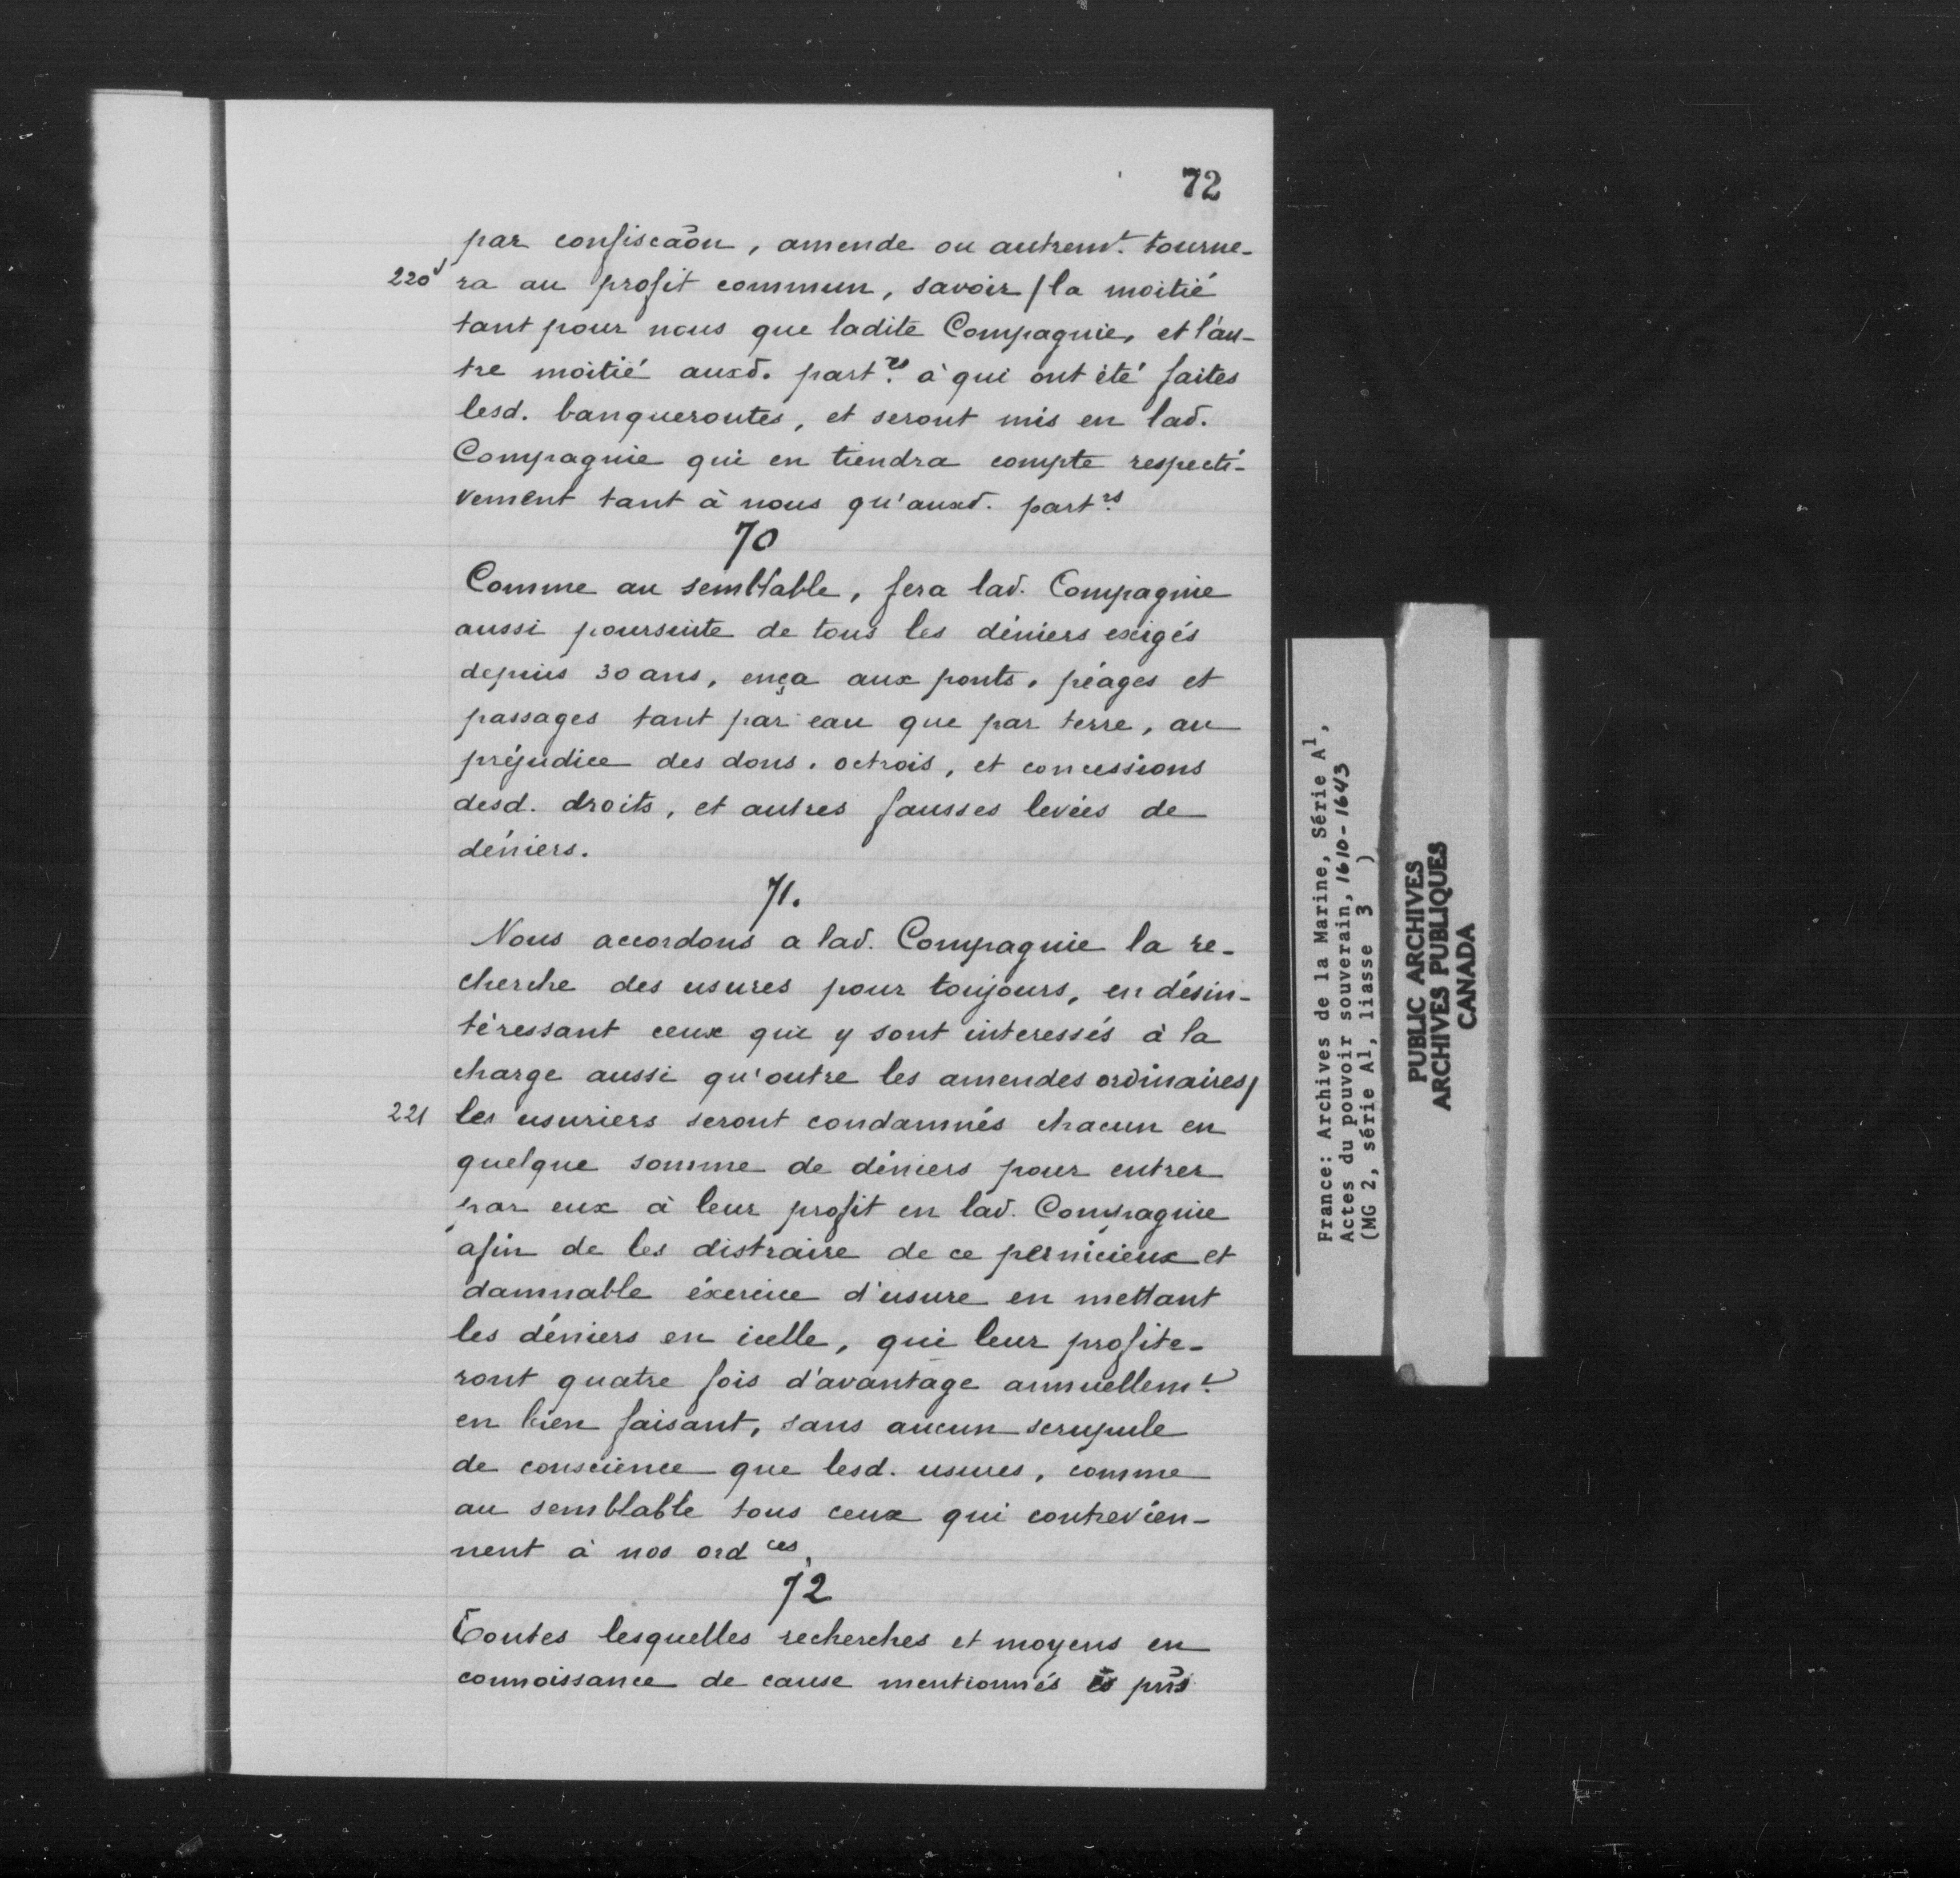 72
par confiscaõn, amende ou autremt. tourne-
220v ra au profit commun, savoir / la moitié
tant pour nous que ladite Compagnie, et l'au-
tre moitié auxd. part.rs à qui ont été faites
lesd. banqueroutes, et seront mis en lad.
Compagnie qui en tiendra compte respecti-
vement tant à nous qu'auxd. part.rs
70
Comme au semblable, fera lad. Compagnie
aussi poursuite de tous les déniers exigés
depuis 30 ans, ença aux ponts, péages et
passages tant par eau que par terre, au
préjudice des dons, octrois, et concessions
desd. droits, et autres fausses levées de
déniers.
71.
Nous accordons a lad. Compagnie la re-
cherche des usures pour toujours, en désin-
téressant ceux qui y sont interessés à la
charge aussi qu'outre les amendes ordinaires/
221 les usuriers seront condamnés chacun en
quelque somme de déniers pour entrer
par eux à leur profit en lad. Compagnie
afin de les distraire de ce pernicieux et
damnable éxercice d'usure en mettant
les déniers en icelle, qui leur profite-
ront quatre fois d'avantage annuellemt.
en bien faisant, sans aucun scrupule
de conscience que lesd. usures, comme
au semblable tous ceux qui contrevien-
nent à nos ordces.
72
Toutes lesquelles recherches et moyens en
connoissance de cause mentionnés ès pñs
France: Archives de la Marine, Série A1,
Actes du pouvoir souverain, 1610-1643
(MG 2, série A1, liasse 3 )
PUBLIC ARCHIVES
ARCHIVES PUBLIQUES
CANADA